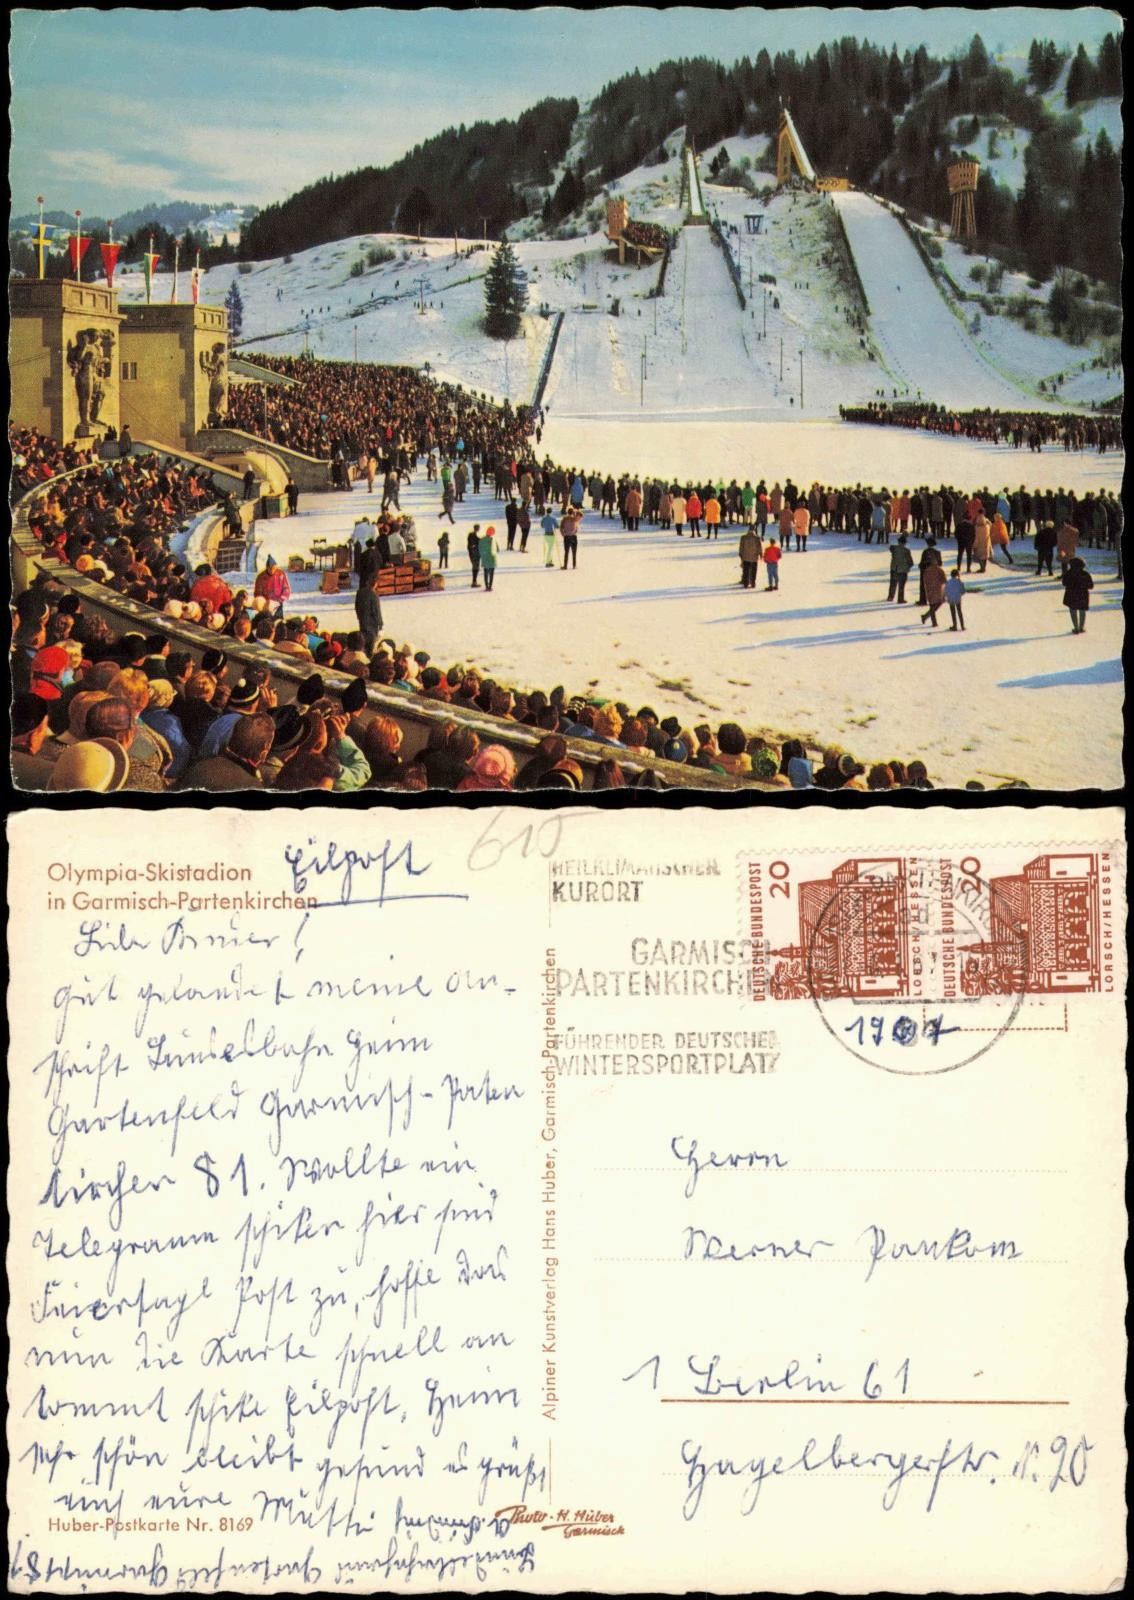 Olympia-Skistadion
in Garmisch-Partenkirchen
Eilpost
615
Liebe Kinder!
gut gelandet meine An-
schrift Bundesbahn Heim
Gartenfeld Garmisch-Paten
kirchen 81. Wollte ein
Telegramm schiken hier sind
Feiertage Post zu, hoffe das
nun die Karte schnell an
kommt schike Eilpost, Heim
sehr schön bleibt gesund es grüßt
euch eure Mutti
Huber-Postkarte Nr. 8169
Photo-H. Huber
Garmisch
Alpiner Kunstverlag Hans Huber, Garmisch-Partenkirchen
HEILKLIMATISCHER
KURORT
GARMISCH
PARTENKIRCHEN
FÜHRENDER DEUTSCHER
WINTERSPORTPLATZ
20
DEUTSCHE BUNDESPOST
LORSCH/HESSEN
20
DEUTSCHE BUNDESPOST
LORSCH/HESSEN
Herrn
Werner Pankom
1 Berlin 61
Hagelbergerstr. N. 20